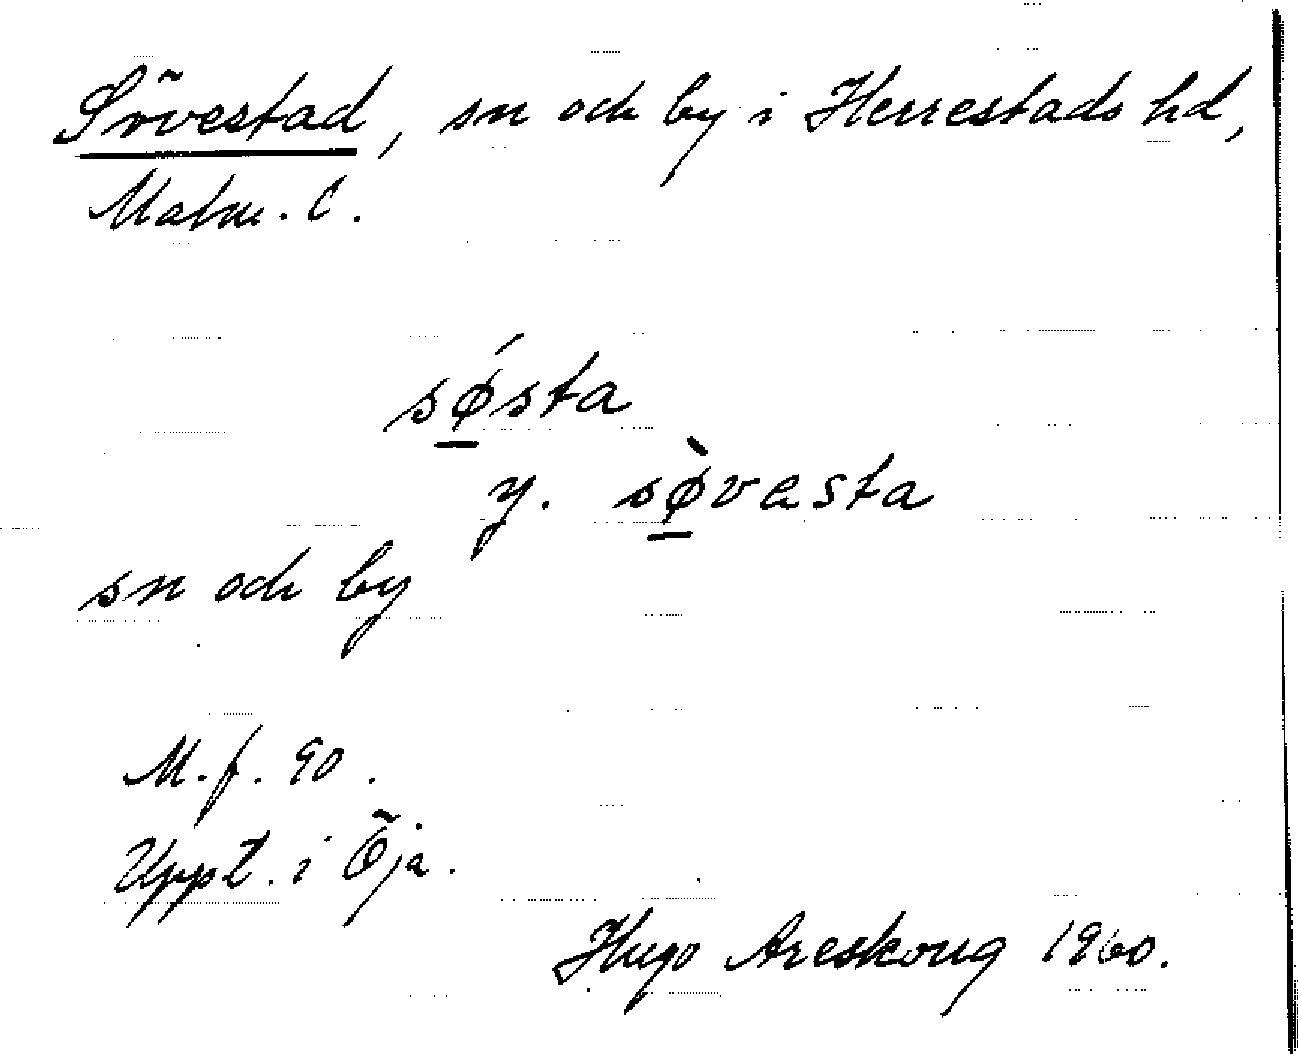 Sövestad, sn och by i Herrestads hd,
Malm. l.
sǿ̱sta
y. sø̱̀vasta
sn och by
M. f. 90.
Uppt. i Öja.
Hugo Areskoug 1960.